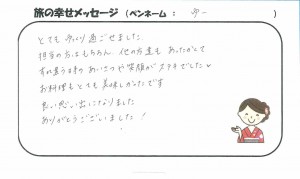 旅の幸せメッセージ (ペンネーム : ゆー )
とても ゆっくり 過ごせました
担当の方はもちろん、他の方達も あったかくて
すれ違う時の あいさつや笑顔が ステキでした♡
お料理もとても美味しかったです
良い思い出になりました
ありがとうございました!